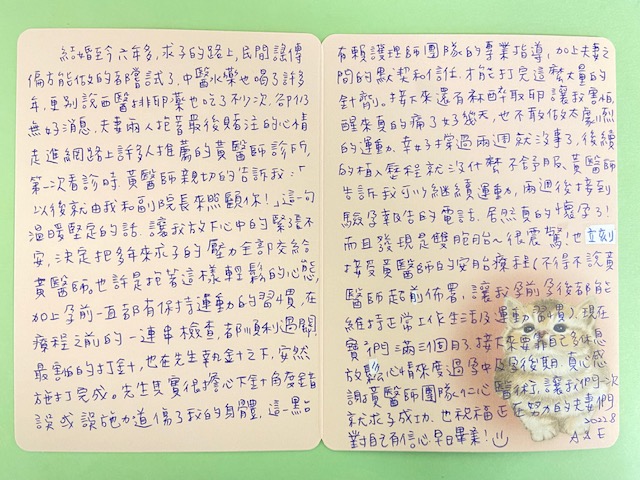 結婚至今六年多,求子的路上,民間謠傳
偏方能做的都嘗試了,中醫水藥也喝了許多
年,更別說西醫排卵藥也吃了不少次,卻仍
無好消息,夫妻兩人抱着最後賭注的心情
走進網路上許多人推薦的黃醫師診所,
第一次看診時,黃醫師親切的告訴我:「
以後就由我和副院長來照顧你!」這一句
溫暖堅定的話,讓我放下心中的緊張不
安,決定把多年來求子的壓力全部交給
黃醫師,也許是抱著這樣輕鬆的心態,
加上孕前一直都有保持運動的習慣,在
療程之前的一連串檢查,都順利過關,
最害怕的打針,也在先生執針之下,安然
施打完成。先生其實很擔心下針角度錯
誤或誤施力道傷了我的身體,這一點
有賴護理師團隊的專業指導,加上夫妻之
間的默契和信任,才能打完這麼大量的
針劑。接下來還有麻醉取卵讓我害怕,
醒來真的痛了好幾天,也不敢做太激烈
的運動,幸好撐過兩週就沒事了,後續
的植入歷程就沒什麼不舒服,黃醫師
告訴我可以繼續運動,兩週後接到
驗孕報告的電話,居然真的懷孕了!
而且發現是雙胞胎~很震驚!也立刻
接受黃醫師的安胎療程(不得不說黃
醫師超前佈署,讓我孕前孕後都能
維持正常上作生活及運動習慣)。現在
寶寶們滿三個月了,接下來要靠自己多休息
放鬆心情來度過孕中及孕後期,真心感
謝黃醫師團隊仁心醫術,讓我們一次
就求子成功,也祝福正在努力的夫妻們
對自己有信心,早日畢業!
2022.8
A&E